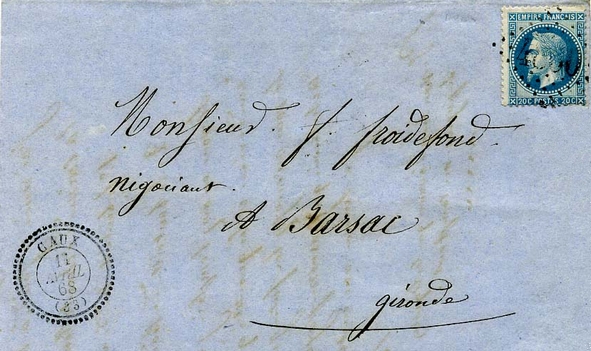 EMPIRE FRANC.IS
20C POSTES 20C
Monsieur. f. froidefond.
négociant.
A Barsac
gironde
CAUX
11
AVRIL
68
(33)